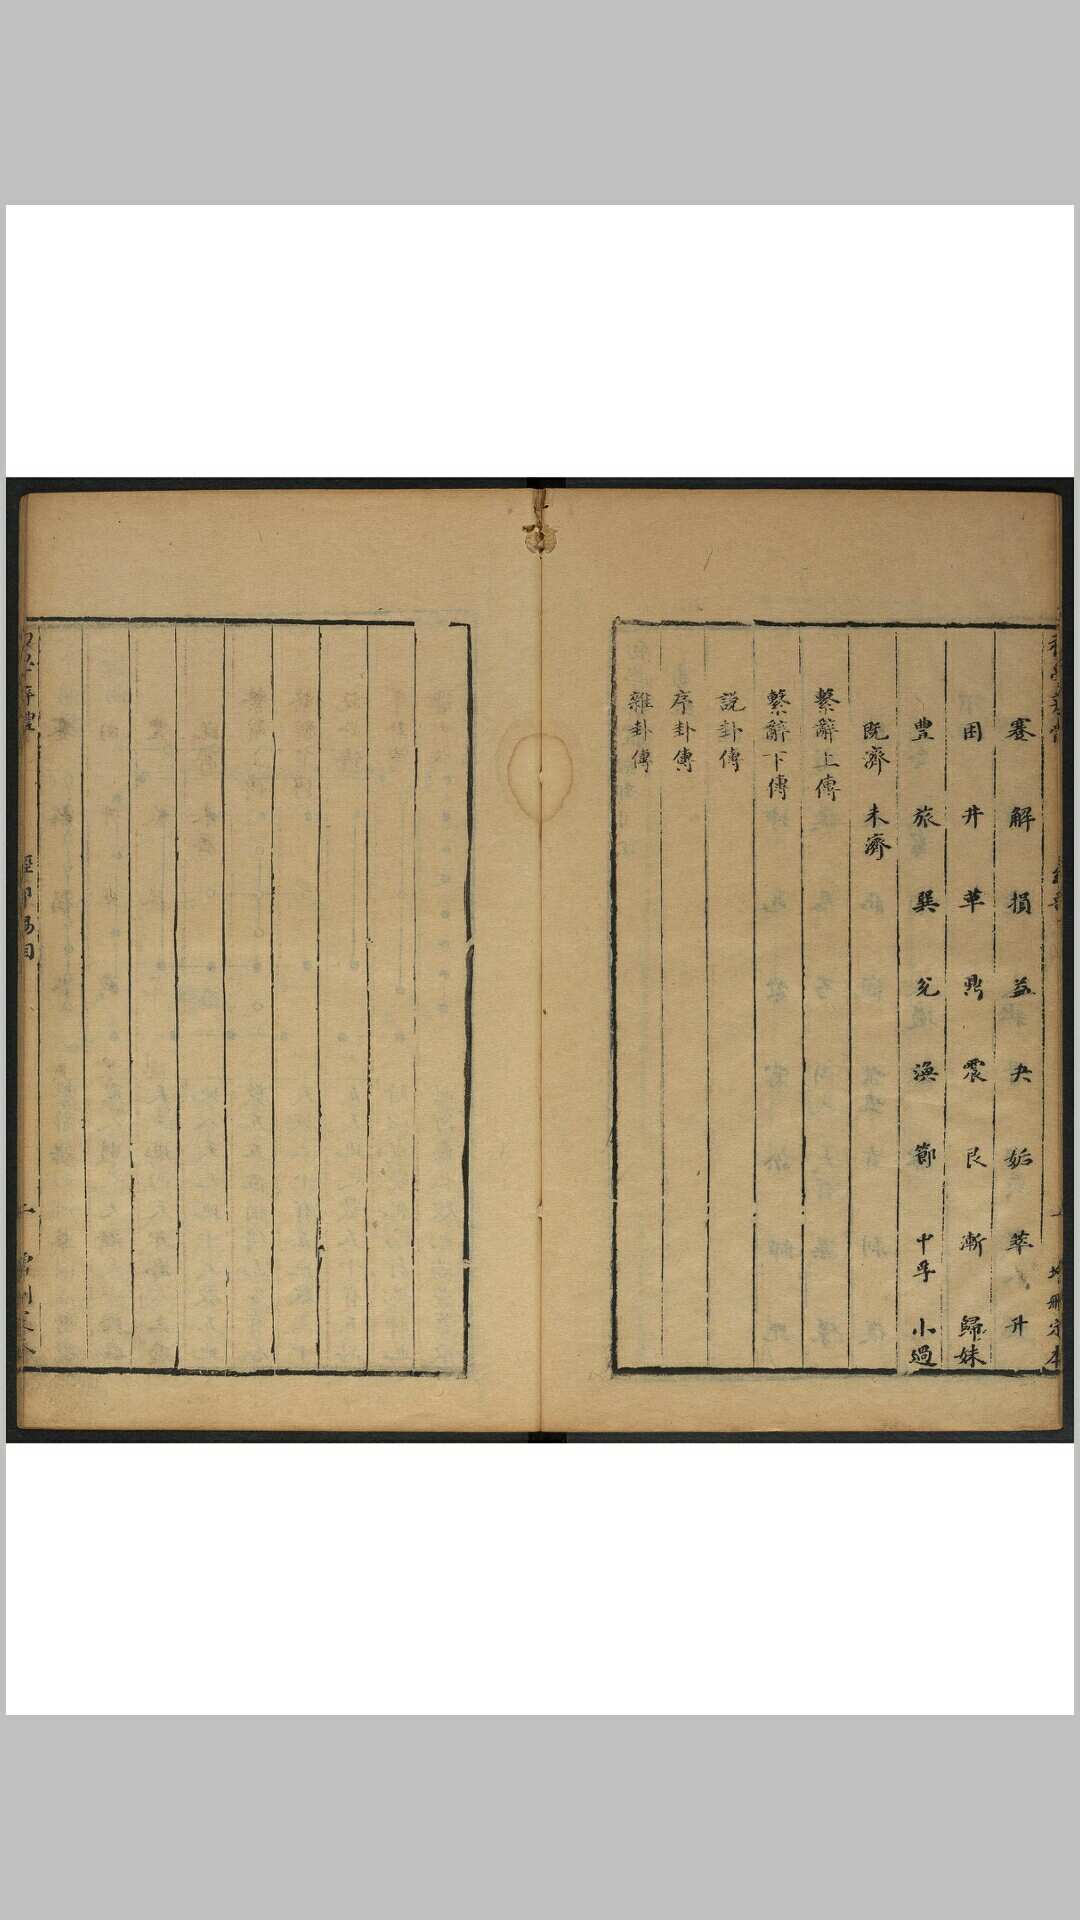 蹇 解 損 益 夬 姤 萃 升
困 井 革 鼎 震 艮 漸 歸妹
豊 旅 巽 兌 渙 節 中孚 小過
既濟 未濟
繫辭上傳
繫辭下傳
說卦傳
序卦傳
雜卦傳